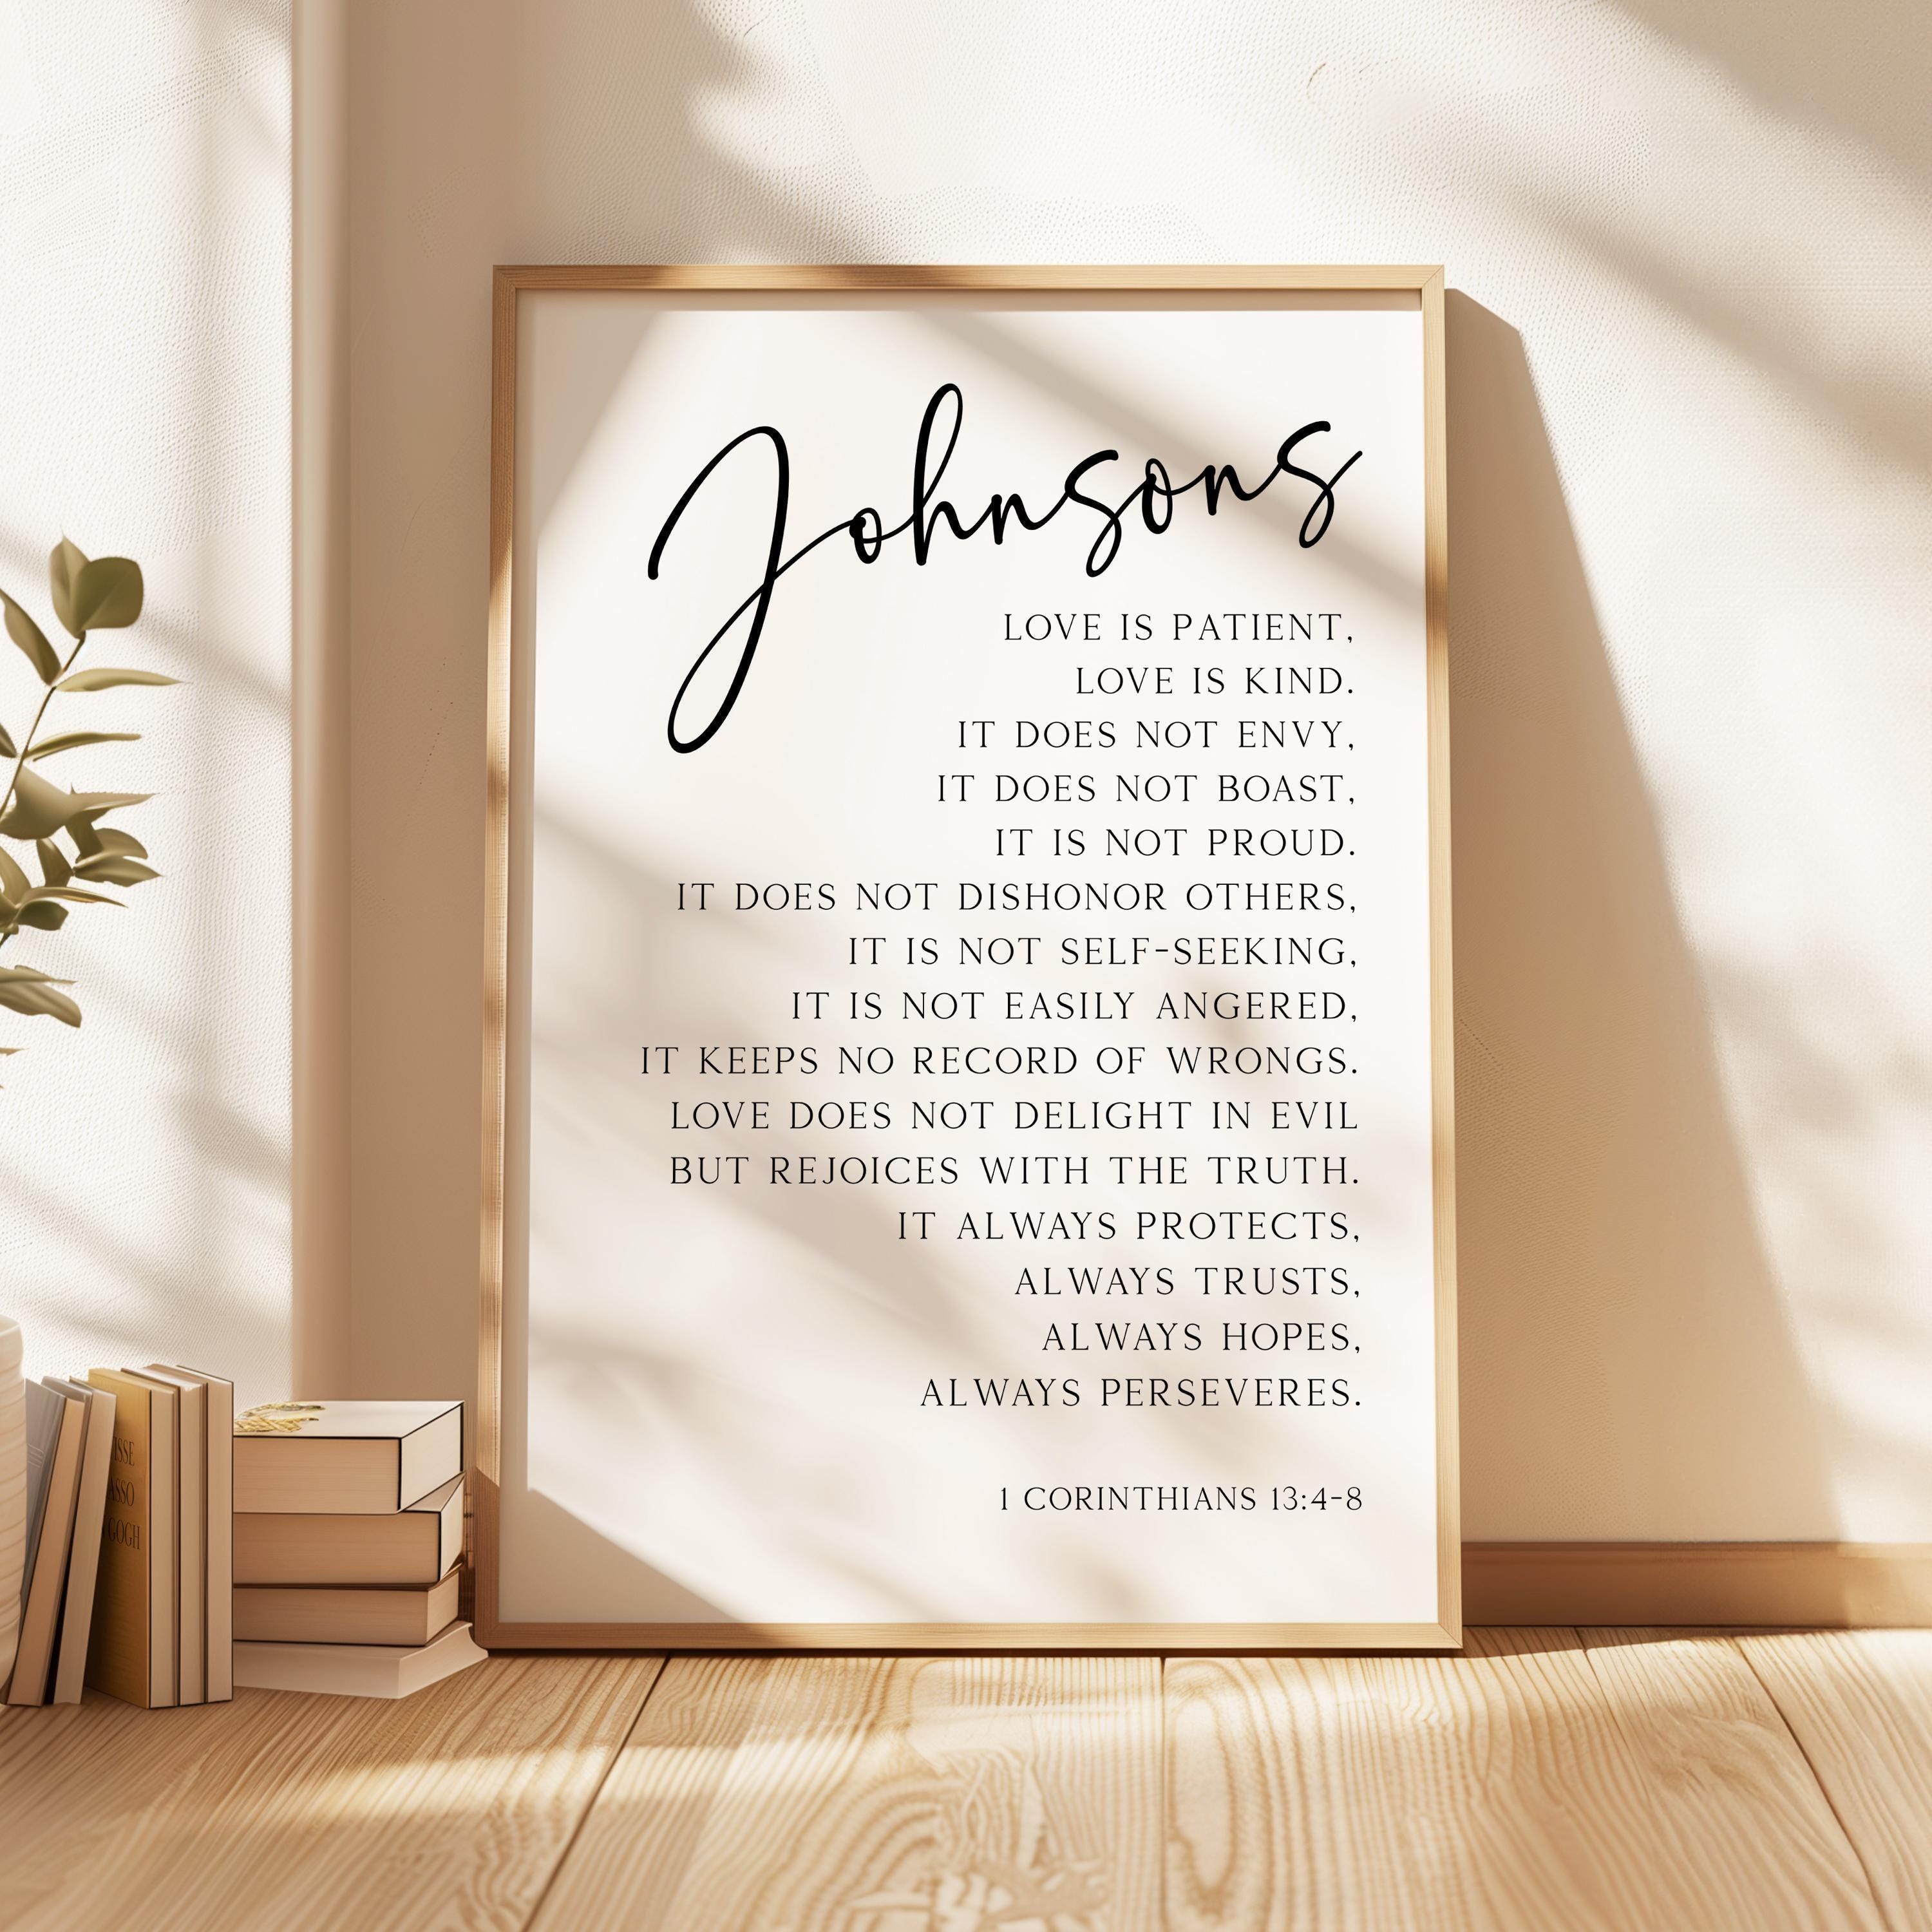 Johnsons
LOVE IS PATIENT,
LOVE IS KIND.
IT DOES NOT ENVY,
IT DOES NOT BOAST,
IT IS NOT PROUD.
IT DOES NOT DISHONOR OTHERS,
IT IS NOT SELF-SEEKING,
IT IS NOT EASILY ANGERED,
IT KEEPS NO RECORD OF WRONGS.
LOVE DOES NOT DELIGHT IN EVIL
BUT REJOICES WITH THE TRUTH.
IT ALWAYS PROTECTS,
ALWAYS TRUSTS,
ALWAYS HOPES,
ALWAYS PERSEVERES.
1 CORINTHIANS 13:4-8
GOGH